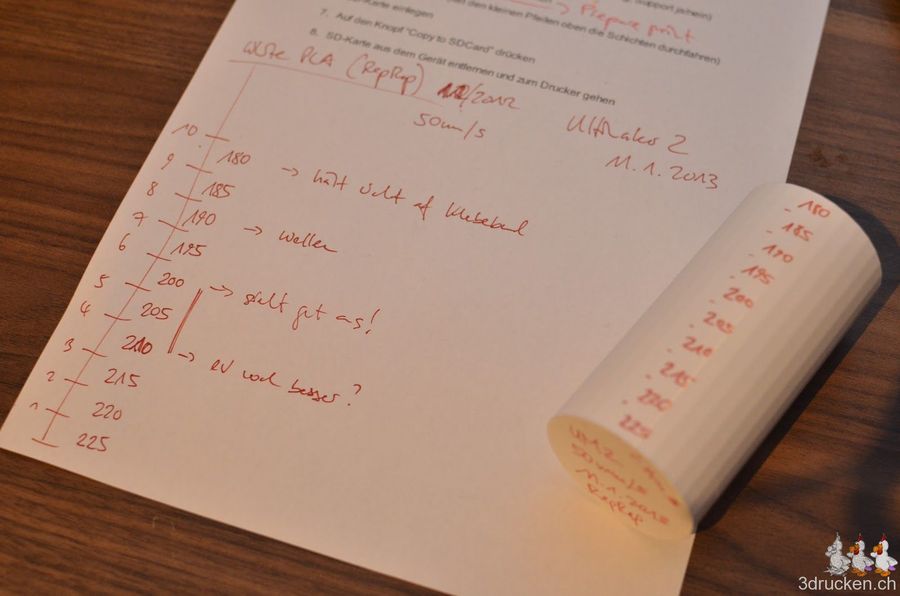 Support ja/nein)
→ Prepare print
-Karte einlegen
(mit den kleinen Pfeilen oben die Schichten durchfahren)
7. Auf den Knopf "Copy to SDCard" drücken
8. SD-Karte aus dem Gerät entfernen und zum Drucker gehen
PLA (RepRap) 12/2012
50mm/s
Ultimaker 2
11.1.2013
10
9 180 → hält nicht auf Klebeband
8 185
7 190 → wellen
6 195
5 200 → sieht gut aus!
4 205
3 210 → ev noch besser?
2 215
1 220
225
- 180
- 185
- 190
- 195
- 200
- 205
- 210
- 215
- 220
225
UM2
50mm/s
11.1.2013
RepRap
3drucken.ch